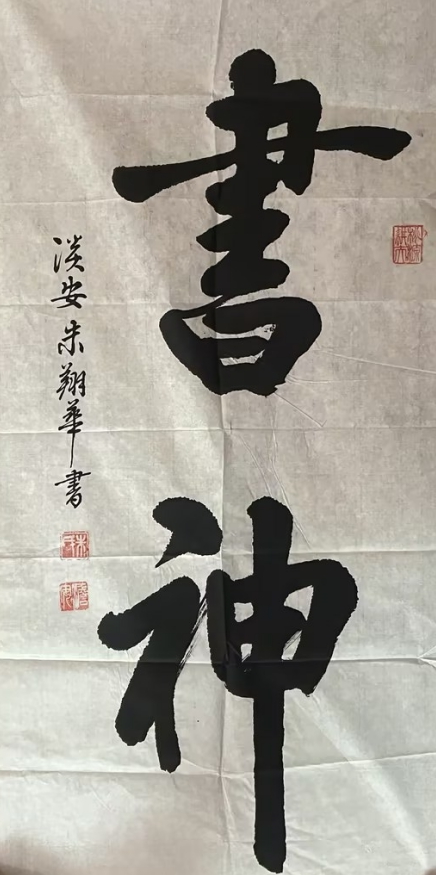 書神
淡安朱翔華書